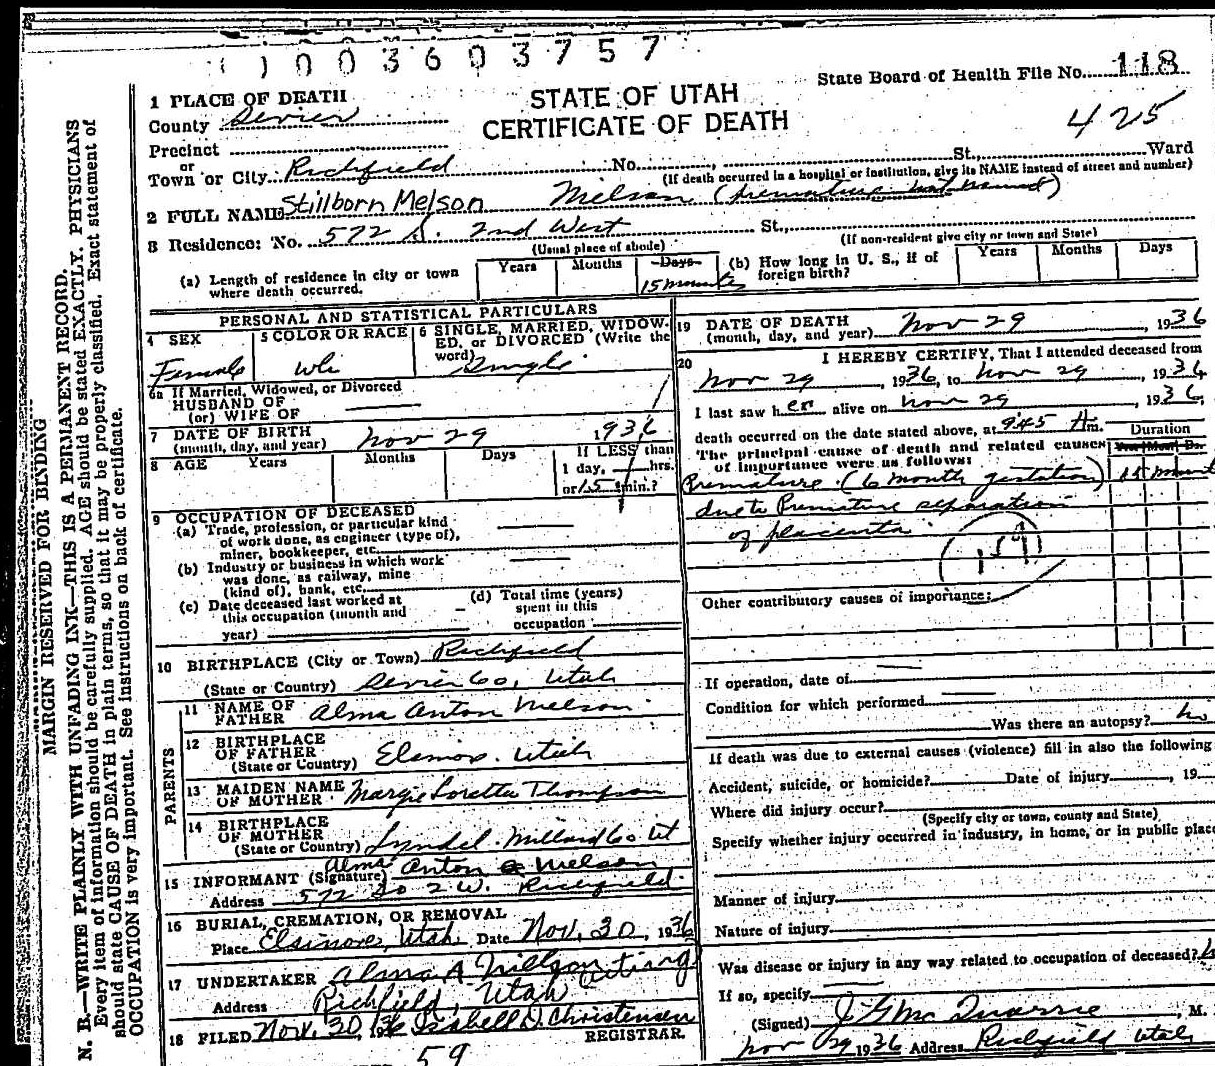 1003603757
State Board of Health File No. 118
STATE OF UTAH
CERTIFICATE OF DEATH
425
1 PLACE OF DEATH
County Sevier
Precinct
or
Town or City Richfield No. St., Ward
(If death occurred in a hospital or institution, give its NAME instead of street and number)
2 FULL NAME Stillborn Melson Melson (Premature not named)
3 Residence: No. 572 S. 2nd West St.,
(Usual place of abode) (If non-resident give city or town and State)
(a) Length of residence in city or town where death occurred. Years Months Days 15 minutes
(b) How long in U. S., if of foreign birth? Years Months Days
PERSONAL AND STATISTICAL PARTICULARS
4 SEX Female
5 COLOR OR RACE Wh
6 SINGLE, MARRIED, WIDOWED, or DIVORCED (Write the word) Single
6a If Married, Widowed, or Divorced
HUSBAND OF
(or) WIFE OF
7 DATE OF BIRTH
(month, day, and year) Nov 29 1936
8 AGE Years Months Days If LESS than
1 day, hrs.
or 15 min.?
9 OCCUPATION OF DECEASED
(a) Trade, profession, or particular kind
of work done, as engineer (type of),
miner, bookkeeper, etc.
(b) Industry or business in which work
was done, as railway, mine
(kind of), bank, etc.
(c) Date deceased last worked at
this occupation (month and
year)
(d) Total time (years)
spent in this
occupation
10 BIRTHPLACE (City or Town) Richfield
(State or Country) Sevier Co, Utah
PARENTS
11 NAME OF
FATHER Alma Anton Melson
12 BIRTHPLACE
OF FATHER
(State or Country) Elsinore, Utah
13 MAIDEN NAME
OF MOTHER Margie Loretta Thompson
14 BIRTHPLACE
OF MOTHER
(State or Country) Lyndel. Millard Co Ut
15 INFORMANT (Signature) Alma Anton Melson
Address 572 So 2 W. Richfield
16 BURIAL, CREMATION, OR REMOVAL
Place Elsinore, Utah Date Nov. 30, 1936
17 UNDERTAKER Alma A Acting
Address Richfield, Utah
18 FILED Nov. 30, 36 Isabell D. Christensen
REGISTRAR.
59
19 DATE OF DEATH
(month, day, and year) Nov 29, 1936
20 I HEREBY CERTIFY, That I attended deceased from
Nov 29, 1936, to Nov 29, 1936
I last saw her alive on Nov 29, 1936,
death occurred on the date stated above, at 945 Am.
The principal cause of death and related causes
of importance were as follows:
Duration
Premature (6 month gestation) 15 minut
due to Premature separation
of placenta
159
Other contributory causes of importance:
If operation, date of
Condition for which performed
Was there an autopsy? no
If death was due to external causes (violence) fill in also the following
Accident, suicide, or homicide? Date of injury , 19
Where did injury occur?
(Specify city or town, county and State)
Specify whether injury occurred in industry, in home, or in public place
Manner of injury
Nature of injury
Was disease or injury in any way related to occupation of deceased?
If so, specify
(Signed) J G McQuarrie, M.
Nov 29 1936 Address Richfield Utah
MARGIN RESERVED FOR BINDING
N. B.—WRITE PLAINLY WITH UNFADING INK—THIS IS A PERMANENT RECORD.
Every item of information should be carefully supplied. AGE should be stated EXACTLY. PHYSICIANS
should state CAUSE OF DEATH in plain terms, so that it may be properly classified. Exact statement of
OCCUPATION is very important. See instructions on back of certificate.